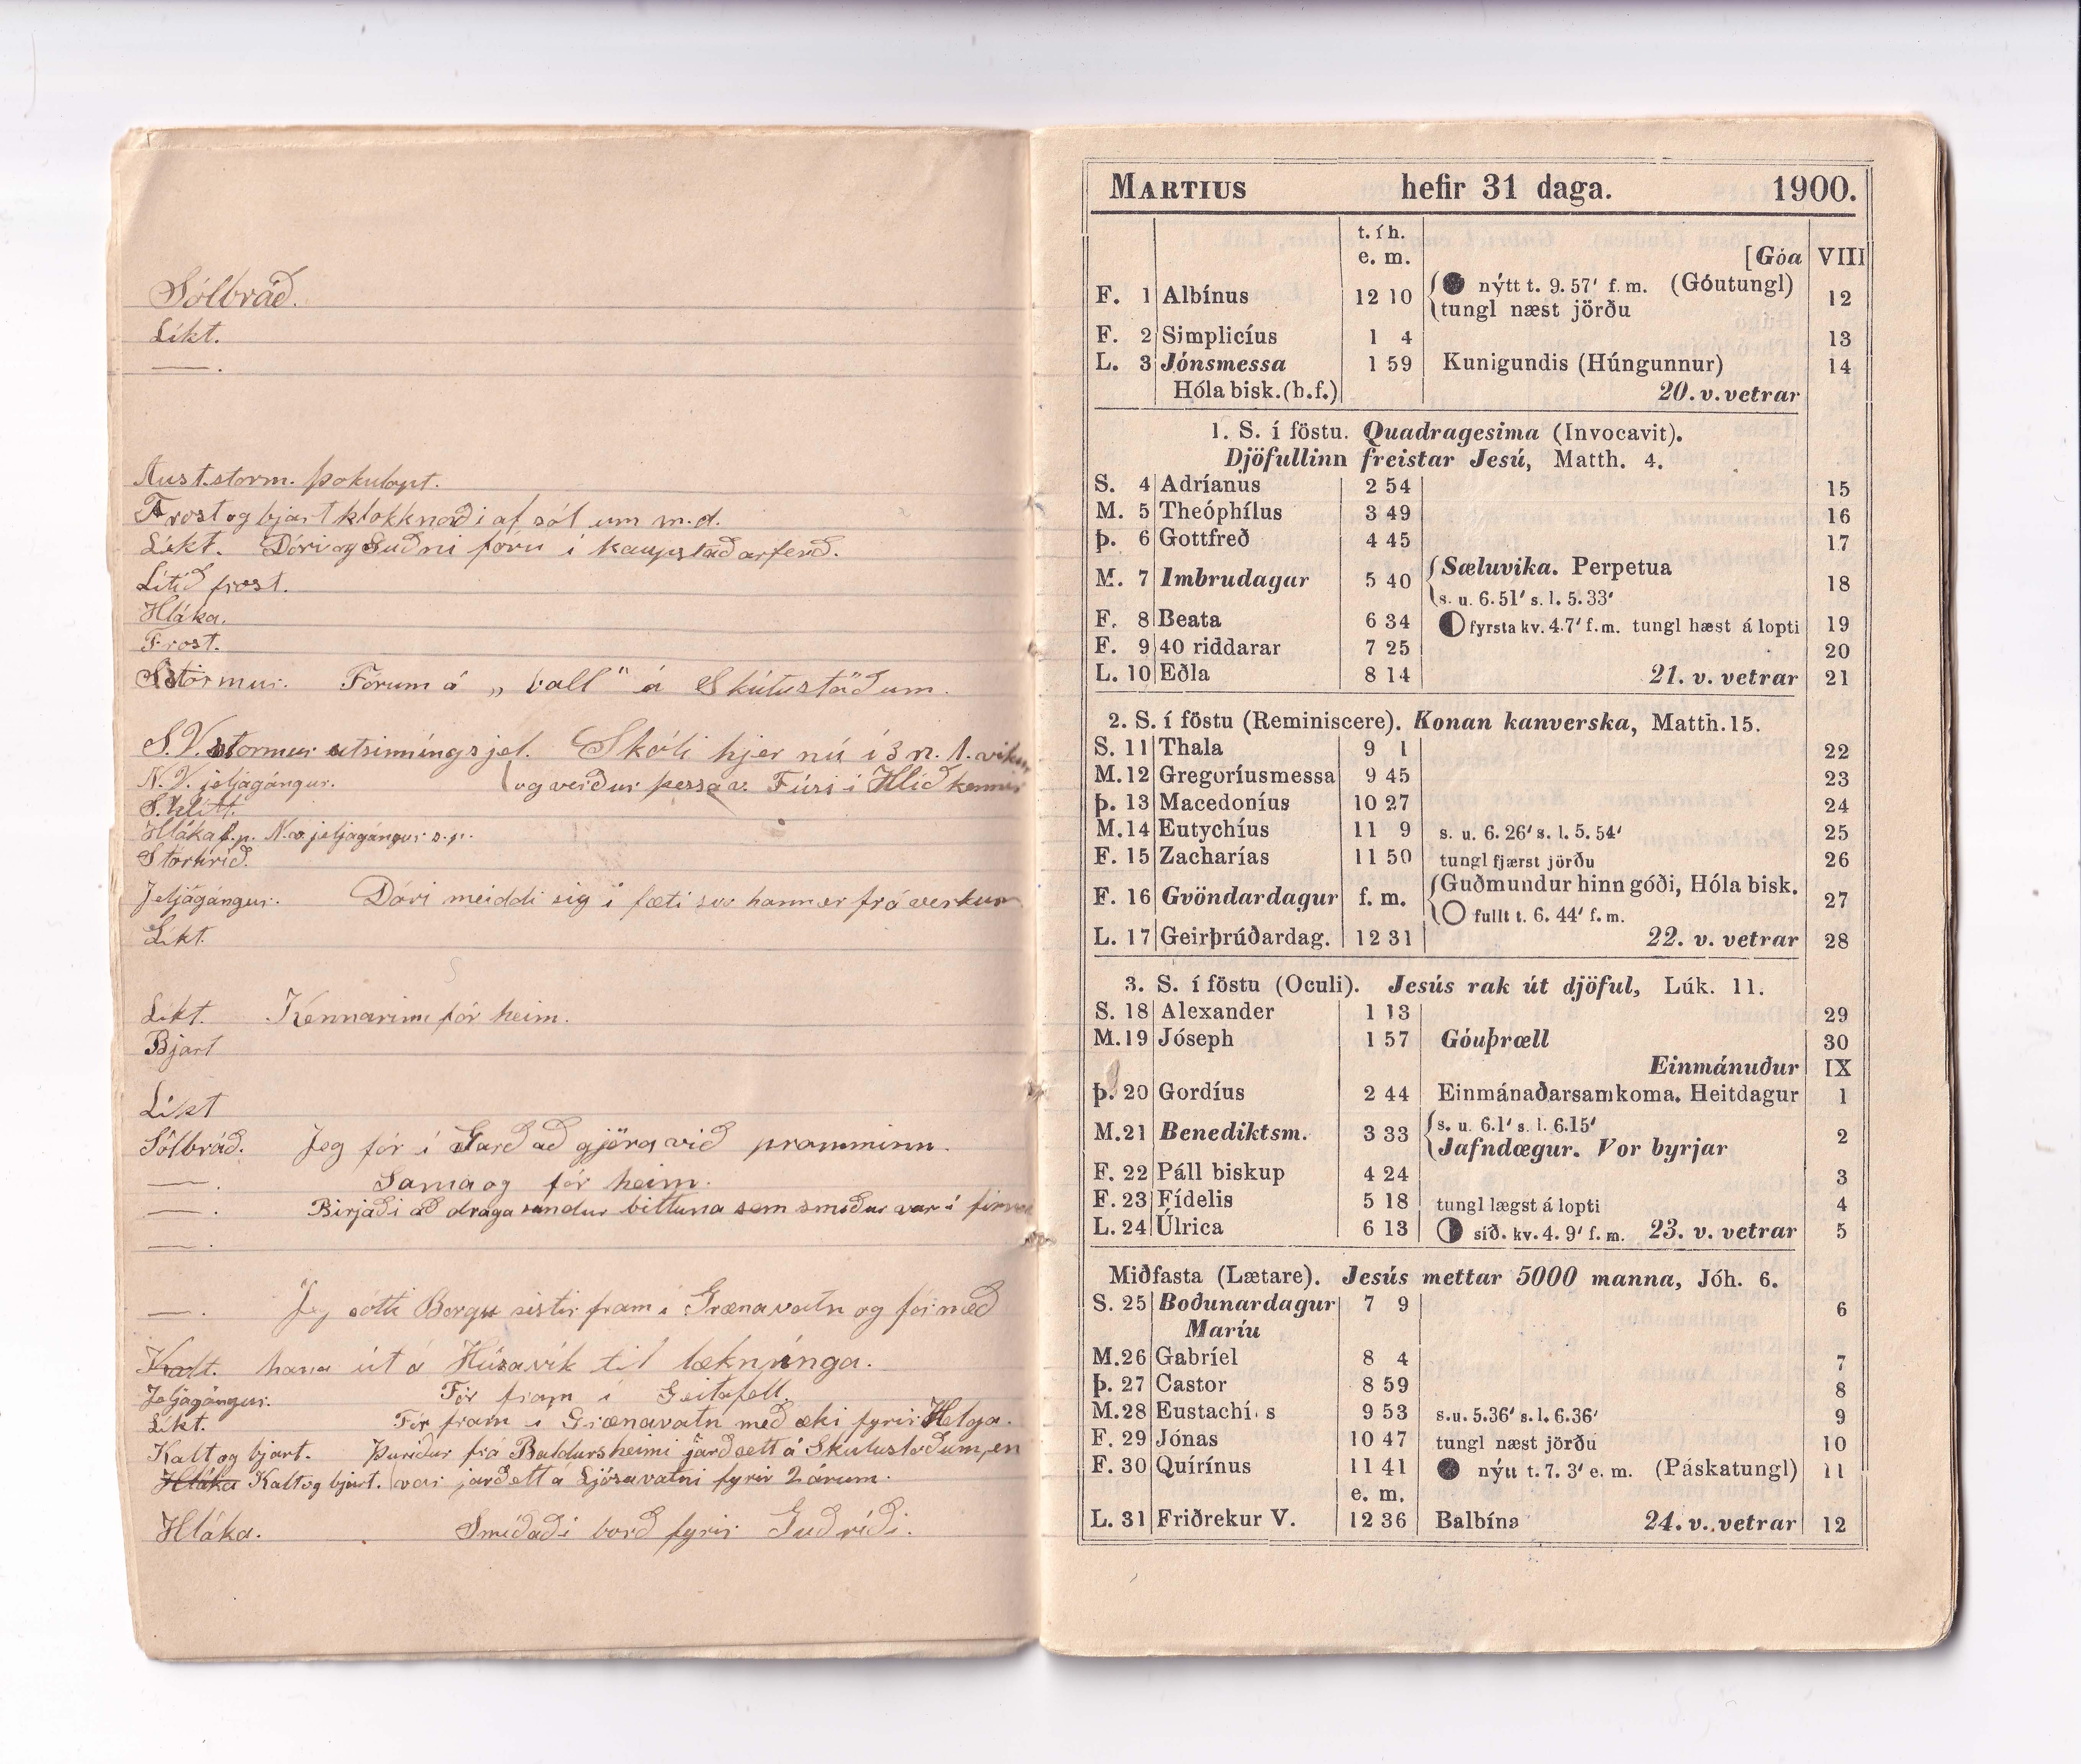 Sólbráð.
Líkt.
— .
Aust.storm. þokulopt.
Frost og bjart klökknaði af sól um m.d.
Líkt. Dóri og Guðni fóru í kaupstaðarferð.
Lítið frost.
Hláka.
Frost.
Stormur. Fórum á „ball“ á Skútustöðum.
S.V. stormur útsinníngsjel. Skóli hjer nú í 3 n. 1. viku
N.V. jeljagángur. og verður þessa v. Fúsi í Hlíð kennir
Hláka f.p. N.a jeljagángur s.p.
Stórhríð.
Jeljagángur. Dóri meiddi sig í fæti svo hann er frá verkum
Líkt.
Líkt. Kennarinn fór heim.
Bjart
Líkt
Sólbráð. Jeg fór í Garð að gjöra við pramminn.
— . Sama og fór heim.
— . Birjaði að draga sundur bittuna sem smíðuð var í firra
— .
— . Jeg sótti Borgu sistir fram í Grænavatn og fór með
Kalt. hana út á Húsavík til læknínga.
Jeljagángur. Fór fram í Geitafell.
Líkt. Fór fram í Grænavatn með æki fyrir Helga.
Kalt og bjart. Þuríður frá Baldursheimi jarðsett á Skútustöðum, en
Hláka Kalt og bjart. var jarðsett á Ljósavatni fyrir 2 árum.
Hláka. Smíðaði borð fyrir Guðríði.
MARTIUS hefir 31 daga. 1900.
t. í h.
e. m. [Góa VIII
F. 1 Albínus 12 10 nýtt t. 9. 57' f. m. (Góutungl) 12
tungl næst jörðu
F. 2 Simplicíus 1 4 13
L. 3 Jónsmessa 1 59 Kunigundis (Húngunnur) 14
Hóla bisk. (h.f.) 20. v. vetrar
1. S. í föstu. Quadragesima (Invocavit).
Djöfullinn freistar Jesú, Matth. 4.
S. 4 Adríanus 2 54 15
M. 5 Theóphílus 3 49 16
Þ. 6 Gottfreð 4 45 17
M. 7 Imbrudagar 5 40 Sæluvika. Perpetua 18
s. u. 6. 51' s. l. 5. 33'
F. 8 Beata 6 34 fyrsta kv. 4. 7' f. m. tungl hæst á lopti 19
F. 9 40 riddarar 7 25 20
L. 10 Eðla 8 14 21. v. vetrar 21
2. S. í föstu (Reminiscere). Konan kanverska, Matth. 15.
S. 11 Thala 9 1 22
M. 12 Gregoríusmessa 9 45 23
Þ. 13 Macedoníus 10 27 24
M. 14 Eutychíus 11 9 s. u. 6. 26' s. l. 5. 54' 25
F. 15 Zacharías 11 50 tungl fjærst jörðu 26
F. 16 Gvöndardagur f. m. Guðmundur hinn góði, Hóla bisk. 27
fullt t. 6. 44' f. m.
L. 17 Geirþrúðardag. 12 31 22. v. vetrar 28
3. S. í föstu (Oculi). Jesús rak út djöful, Lúk. 11.
S. 18 Alexander 1 13 29
M. 19 Jóseph 1 57 Góuþræll 30
Einmánuður IX
Þ. 20 Gordíus 2 44 Einmánaðarsamkoma. Heitdagur 1
M. 21 Benediktsm. 3 33 s. u. 6.1' s. l. 6.15' 2
Jafndægur. Vor byrjar
F. 22 Páll biskup 4 24 3
F. 23 Fídelis 5 18 tungl lægst á lopti 4
L. 24 Úlrica 6 13 síð. kv. 4. 9' f. m. 23. v. vetrar 5
Miðfasta (Lætare). Jesús mettar 5000 manna, Jóh. 6.
S. 25 Boðunardagur 7 9 6
Maríu
M. 26 Gabríel 8 4 7
Þ. 27 Castor 8 59 8
M. 28 Eustachí s 9 53 s. u. 5.36' s. l. 6.36' 9
F. 29 Jónas 10 47 tungl næst jörðu 10
F. 30 Quírínus 11 41 nýtt t. 7. 3' e. m. (Páskatungl) 11
e. m.
L. 31 Friðrekur V. 12 36 Balbína 24. v. vetrar 12